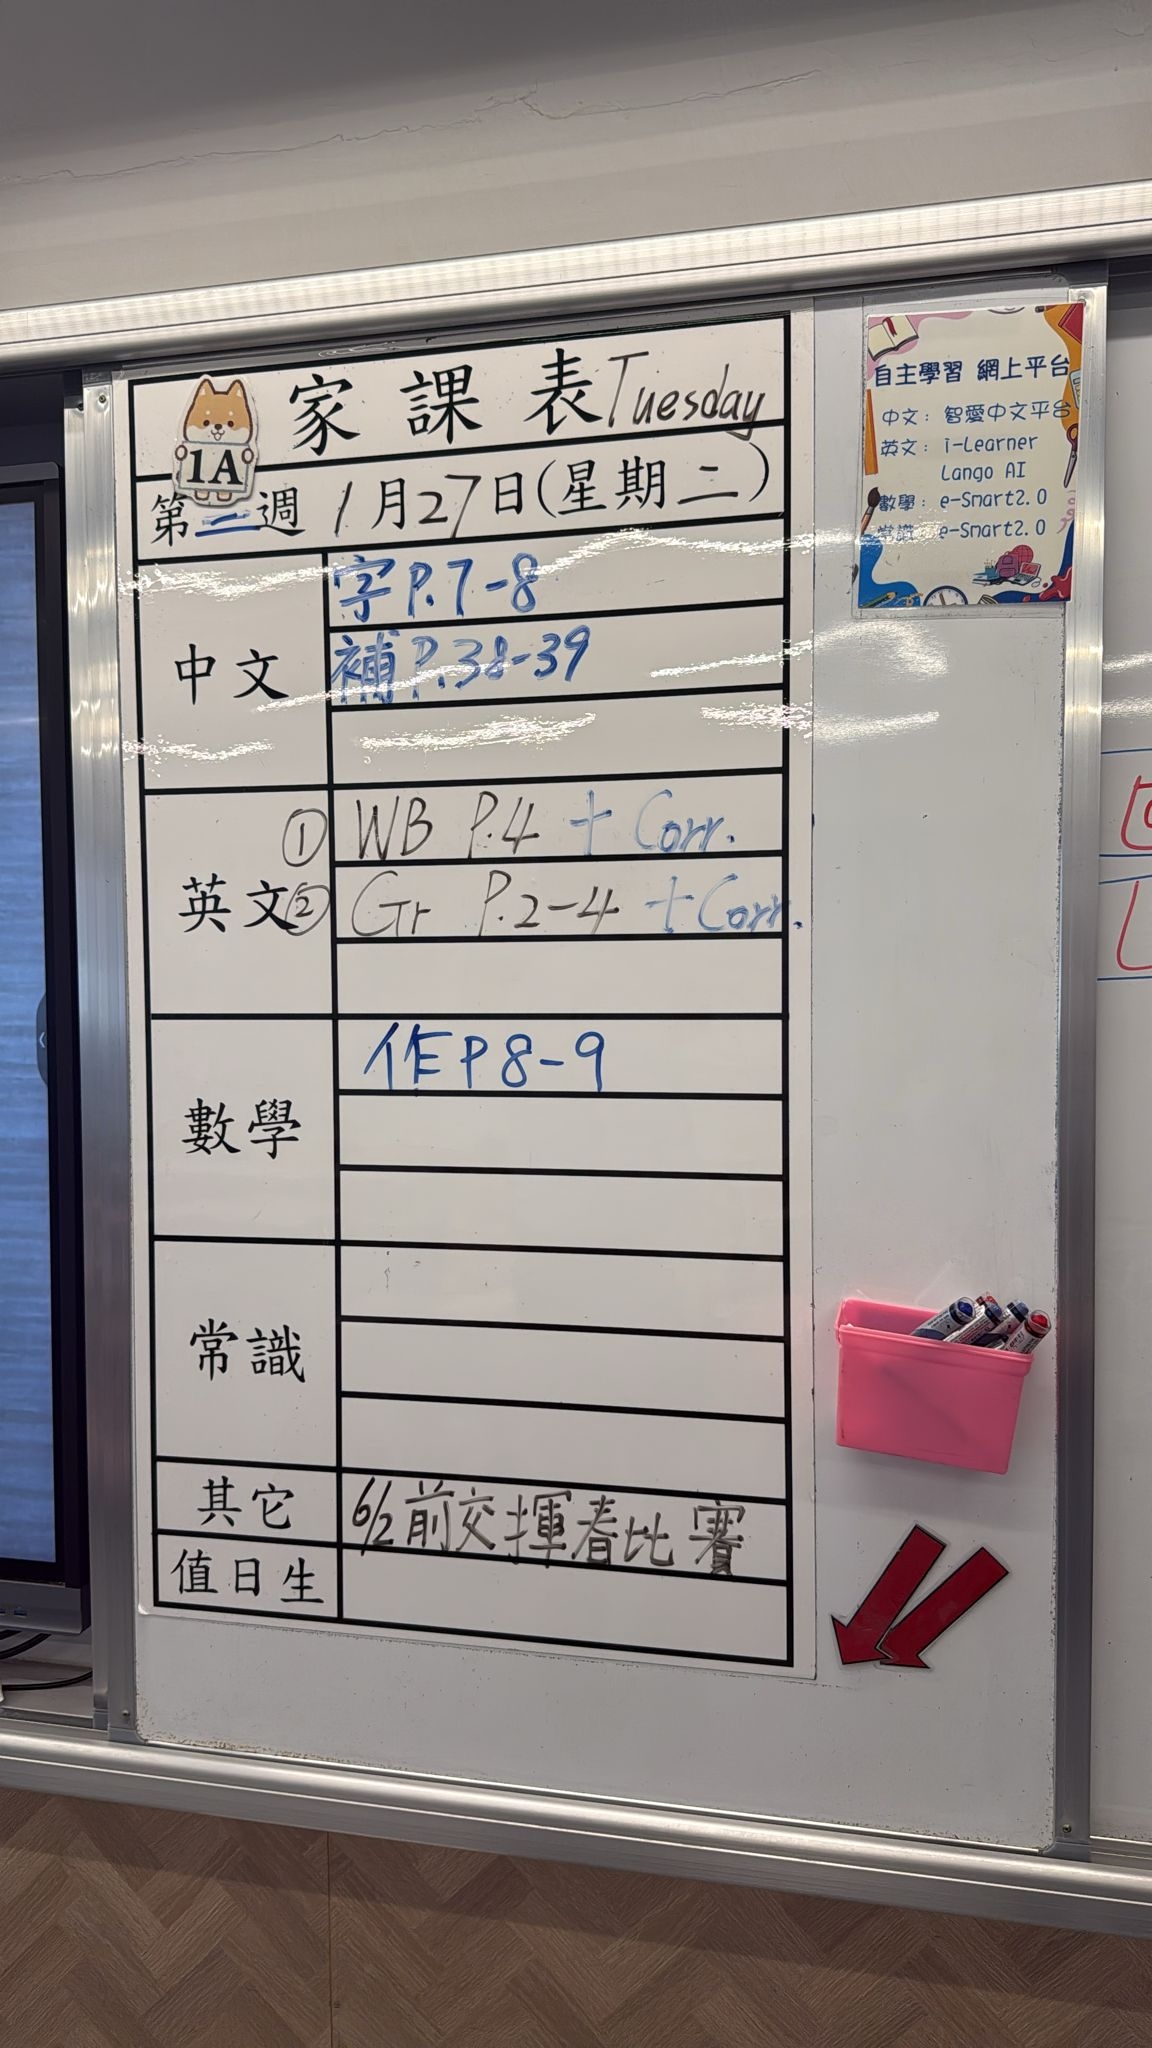 家課表 Tuesday
1A
第二週 1月27日(星期二)
中文
字 P.7-8
補 P.38-39
英文
① WB P.4 + Corr.
② Gr P.2-4 + Corr.
數學
作 P 8-9
常識
其它
6/2前交揮春比賽
值日生
自主學習 網上平台
中文: 智愛中文平台
英文: i-Learner
Lango AI
數學: e-Smart2.0
常識: e-Smart2.0